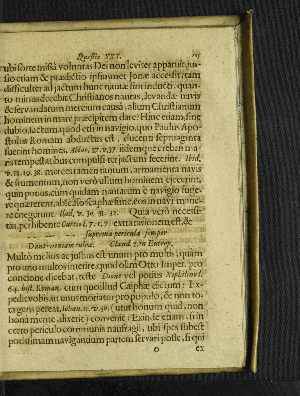 Quæstio XXX. 105
ubi sorte missâ voluntas Dei non leviter apparuit, jus-
sio etiam & prædictio ipsiusmet Jonæ accessit; tam
difficulter ad jactum hunc nautæ sint inducti: quan-
to minus decebit Christianos nautas, levandæ navis
& servandarum mercium causâ, alium Christianum
hominem in mare præcipitem dare? Hinc etiam, sine
dubio, factum, quod etsi in navigio, quo Paulus Apo-
stolus Romam abductus est, ducenti septuaginta
fuerint homines, Actor. 27. v. 37. iidemque crebris ma-
ris tempestatibus compulsi ter jactum fecerint. Ibid.
v. 18. 19. 38. merces tamen tantum, armamenta navis
& frumentum, non verò ullum hominem ejecerint,
quin potius, cum quidam nautarum è navigio fuge-
re quærerent, abscisso scaphæ fune, eos in navi mane-
re coëgerunt Ibid. v. 30. 31. 32. Quia verò necessi-
tas, perhibente Curtio l. 7. c. 7. extra rationem, est, &
-- -- -- suprema pericula semper
Dant veniam culpæ. Claud. 2. in Eutrop.
Multò melius ac justius est unum pro multis, quam
pro uno multos interire, quod olim Otto Imper. pro
concione dicebat, teste Dione vel potius Xiphilino l.
64. hist. Roman. cum quo illud Caiphæ dictum: Ex-
pedit vobis, ut unus moriatur pro populo, & non to-
ta gens pereat, Johan. 11. v. 50. (ut ut homum quid, non
bonâ mente, dixerit) convenit: Exinde etiam, si in
certo periculo communis naufragii, ubi spes subest
potissimam navigantium partem servari posse, si qui
O ex